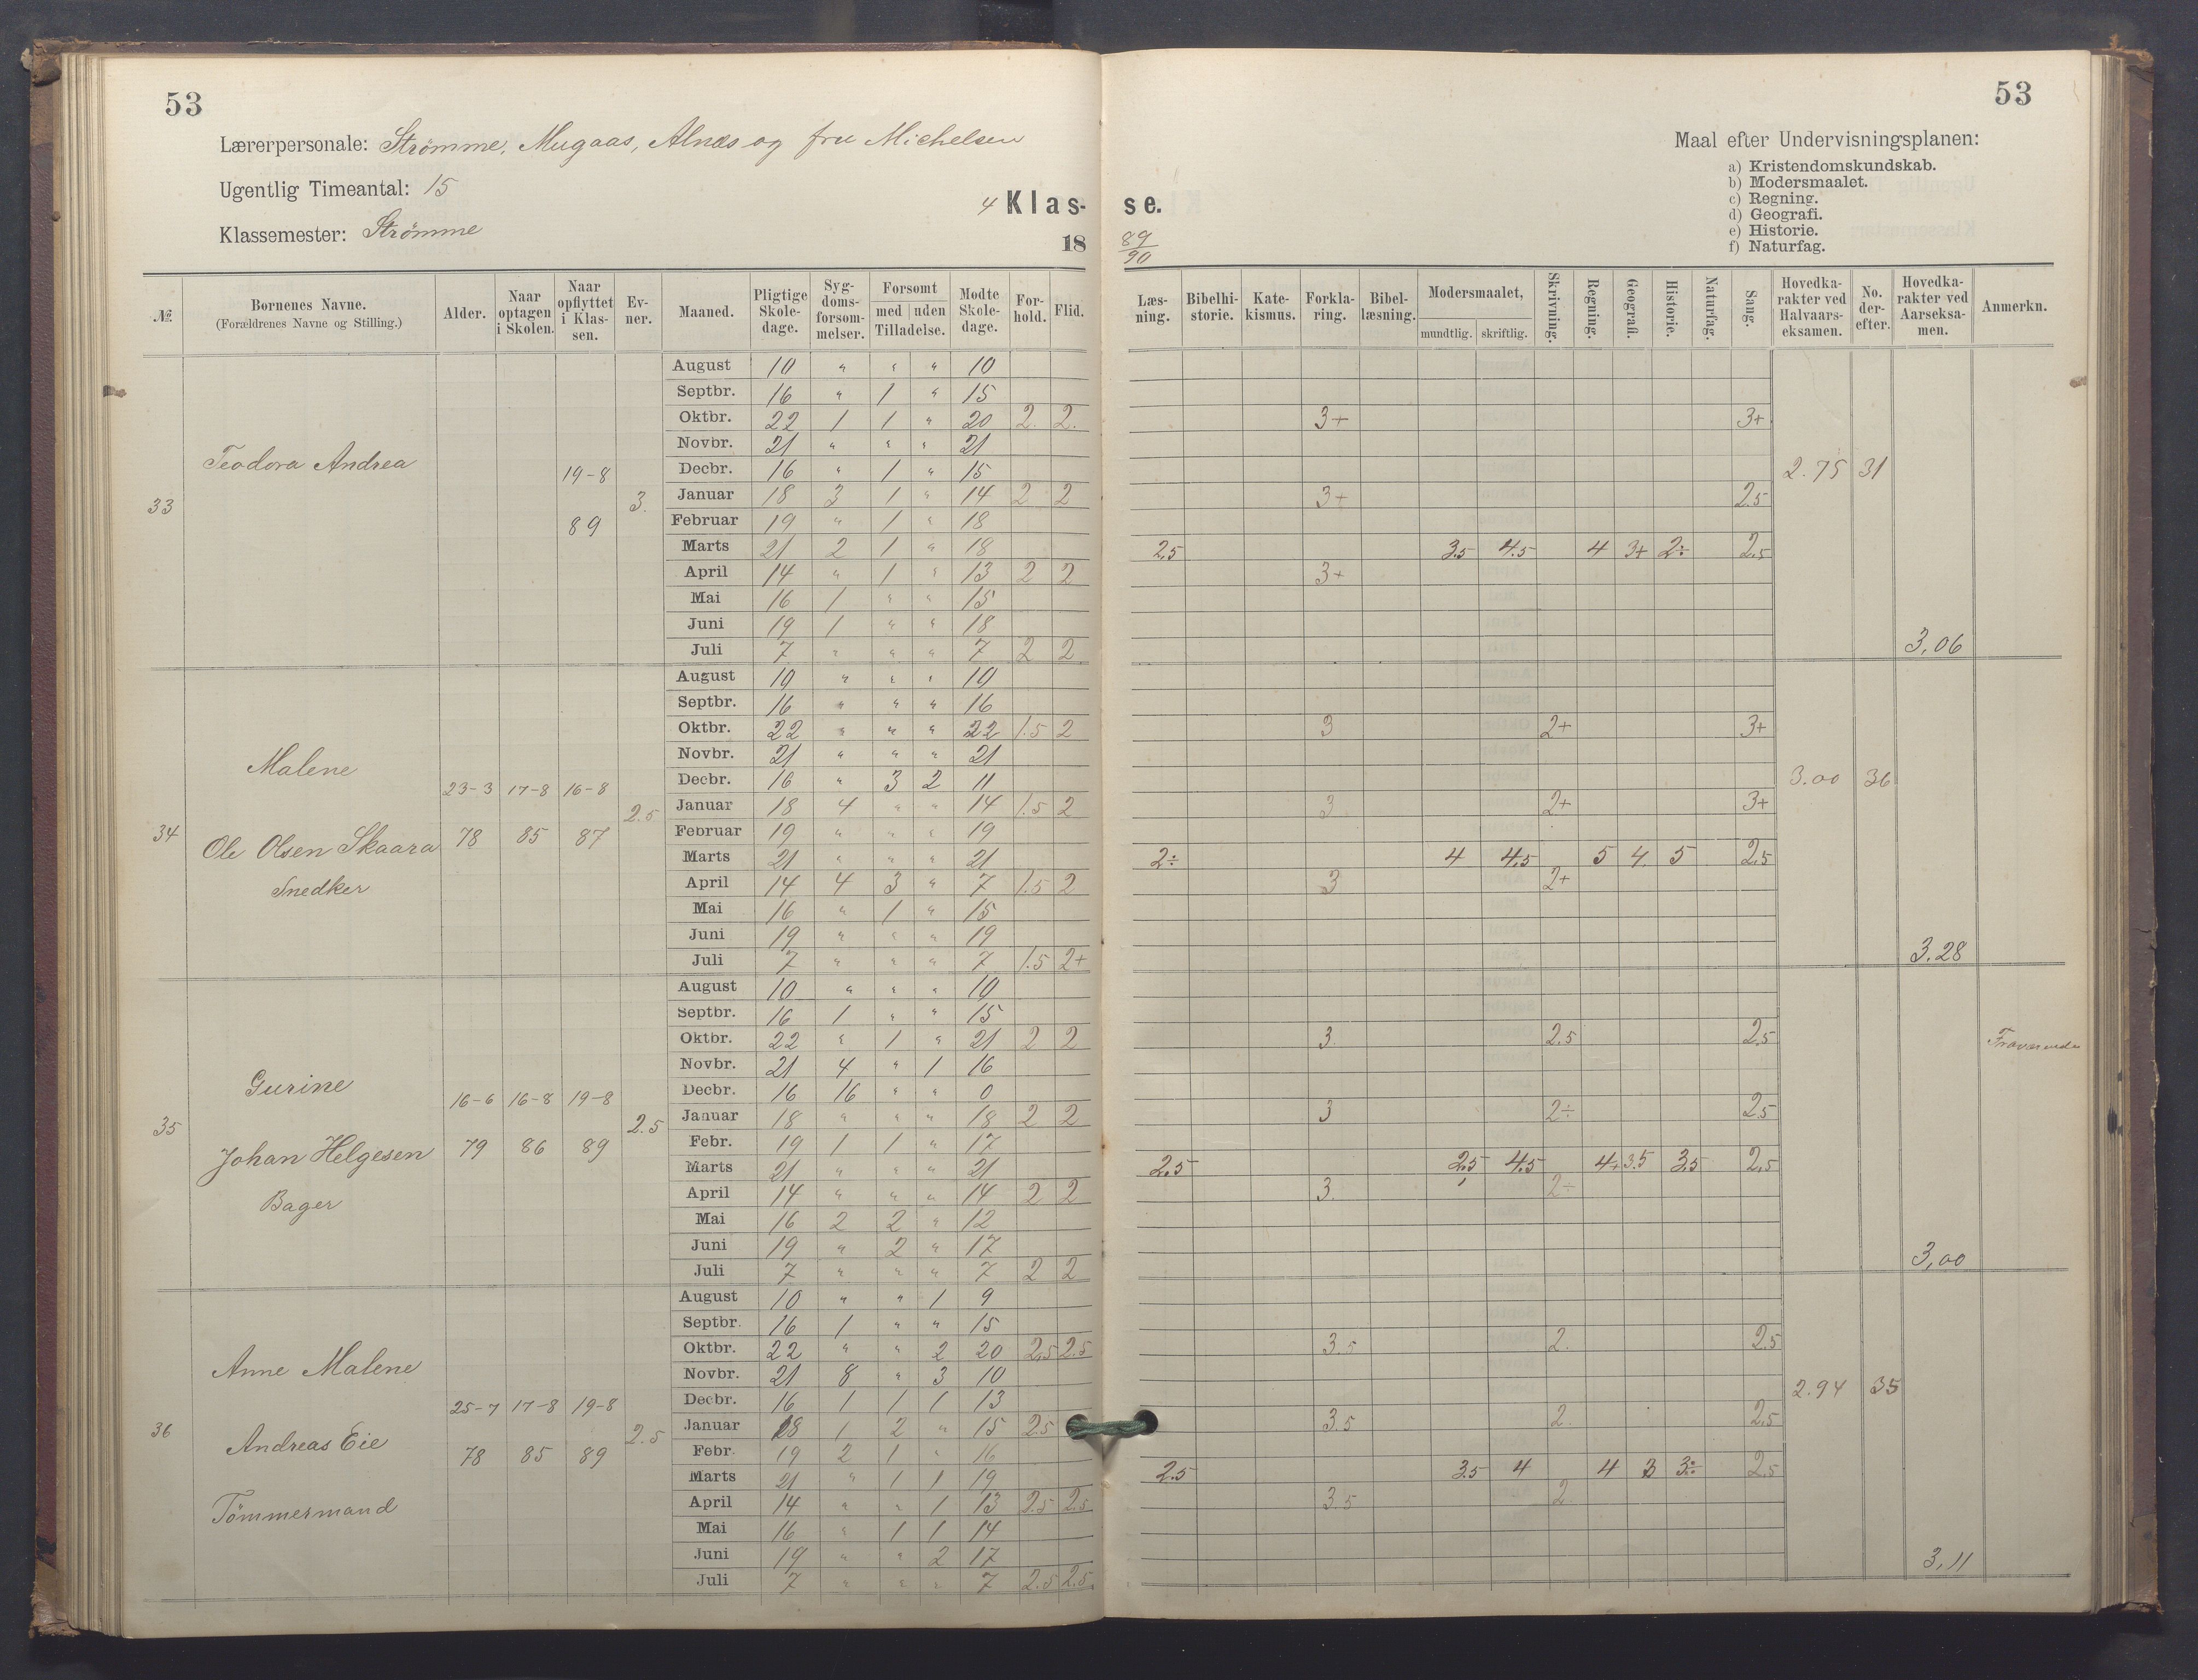 53
Lærerpersonale: Strømme, Mugaas, Alnæs og fru Michelsen
Ugentlig Timeantal: 15
Klassemester: Strømme
4 Klas-
18
№ Børnenes Navne. (Forældrenes Navne og Stilling.) Alder. Naar optagen i Skolen. Naar opflyttet i Klassen. Evner. Maaned. Pligtige Skoledage. Sygdomsforsømmelser. Forsømt med uden Tilladelse. Mødte Skoledage. Forhold. Flid.
33 Teodora Andrea 19-8 89 3.
August 10 " " " 10
Septbr. 16 " 1 " 15
Oktbr. 22 1 1 " 20 2. 2.
Novbr. 21 " " " 21
Decbr. 16 " 1 " 15
Januar 18 3 1 " 14 2 2
Februar 19 " 1 " 18
Marts 21 2 1 " 18
April 14 " 1 " 13 2 2
Mai 16 1 " " 15
Juni 19 1 " " 18
Juli 7 " " " 7 2 2
34 Malene 23-3 78 17-8 85 16-8 87 2.5
Ole Olsen Skaara
Snedker
August 10 " " " 10
Septbr. 16 " " " 16
Oktbr. 22 " " " 22 1.5 2
Novbr. 21 " " " 21
Decbr. 16 " 3 2 11
Januar 18 4 " " 14 1.5 2
Februar 19 " " " 19
Marts 21 " " " 21
April 14 4 3 " 7 1.5 2
Mai 16 " 1 " 15
Juni 19 " " " 19
Juli 7 " " " 7 1.5 2+
35 Gurine 16-6 79 16-8 86 19-8 89 2.5
Johan Helgesen
Bager
August 10 " " " 10
Septbr. 16 1 " " 15
Oktbr. 22 " 1 " 21 2 2
Novbr. 21 4 " 1 16
Decbr. 16 16 " " 0
Januar 18 " " " 18 2 2
Febr. 19 1 1 " 17
Marts 21 " " " 21
April 14 " " " 14 2 2
Mai 16 2 2 " 12
Juni 19 " 2 " 17
Juli 7 " " " 7 2 2
36 Anne Malene 25-7 78 17-8 85 19-8 89 2.5
Andreas Eie
Tömmermand
August 10 " " 1 9
Septbr. 16 1 " " 15
Oktbr. 22 " " 2 20 2.5 2.5
Novbr. 21 8 " 3 10
Decbr. 16 1 1 1 13
Januar 18 1 2 " 15 2.5
Febr. 19 2 1 " 16
Marts 21 " 1 1 19
April 14 " " 1 13 2.5 2.5
Mai 16 " 1 1 14
Juni 19 " " 2 17
Juli 7 " " " 7 2.5 2.5
53
Maal efter Undervisningsplanen:
a) Kristendomskundskab.
b) Modersmaalet.
c) Regning.
d) Geografi.
e) Historie.
f) Naturfag.
se.
89/90
Læsning. Bibelhistorie. Katekismus. Forklaring. Bibellæsning. Modersmaalet, mundtlig. skriftlig. Skrivning. Regning. Geografi. Historie. Naturfag. Sang. Hovedkarakter ved Halvaarseksamen. No. derefter. Hovedkarakter ved Aarseksamen. Anmerkn.
3+ 3+
2.75 31
3+ 2.5
2.5 3.5 4.5 4 3+ 2÷ 2.5
3+
3,06
3 2+ 3+
3.00 36
3 2+ 3+
2÷ 4 4.5 5 4. 5 2.5
3 2+
3.28
3. 2.5 2.5 Fraværende
3 2÷ 2.5
2.5 2.5 4.5 4+ 3.5 3.5 2.5
3. 2÷
3,00
3.5 2. 2.5
2.94 35
3.5 2. 2.5
2.5 3.5 4 4 3 3÷ 2.5
3.5 2
3,11